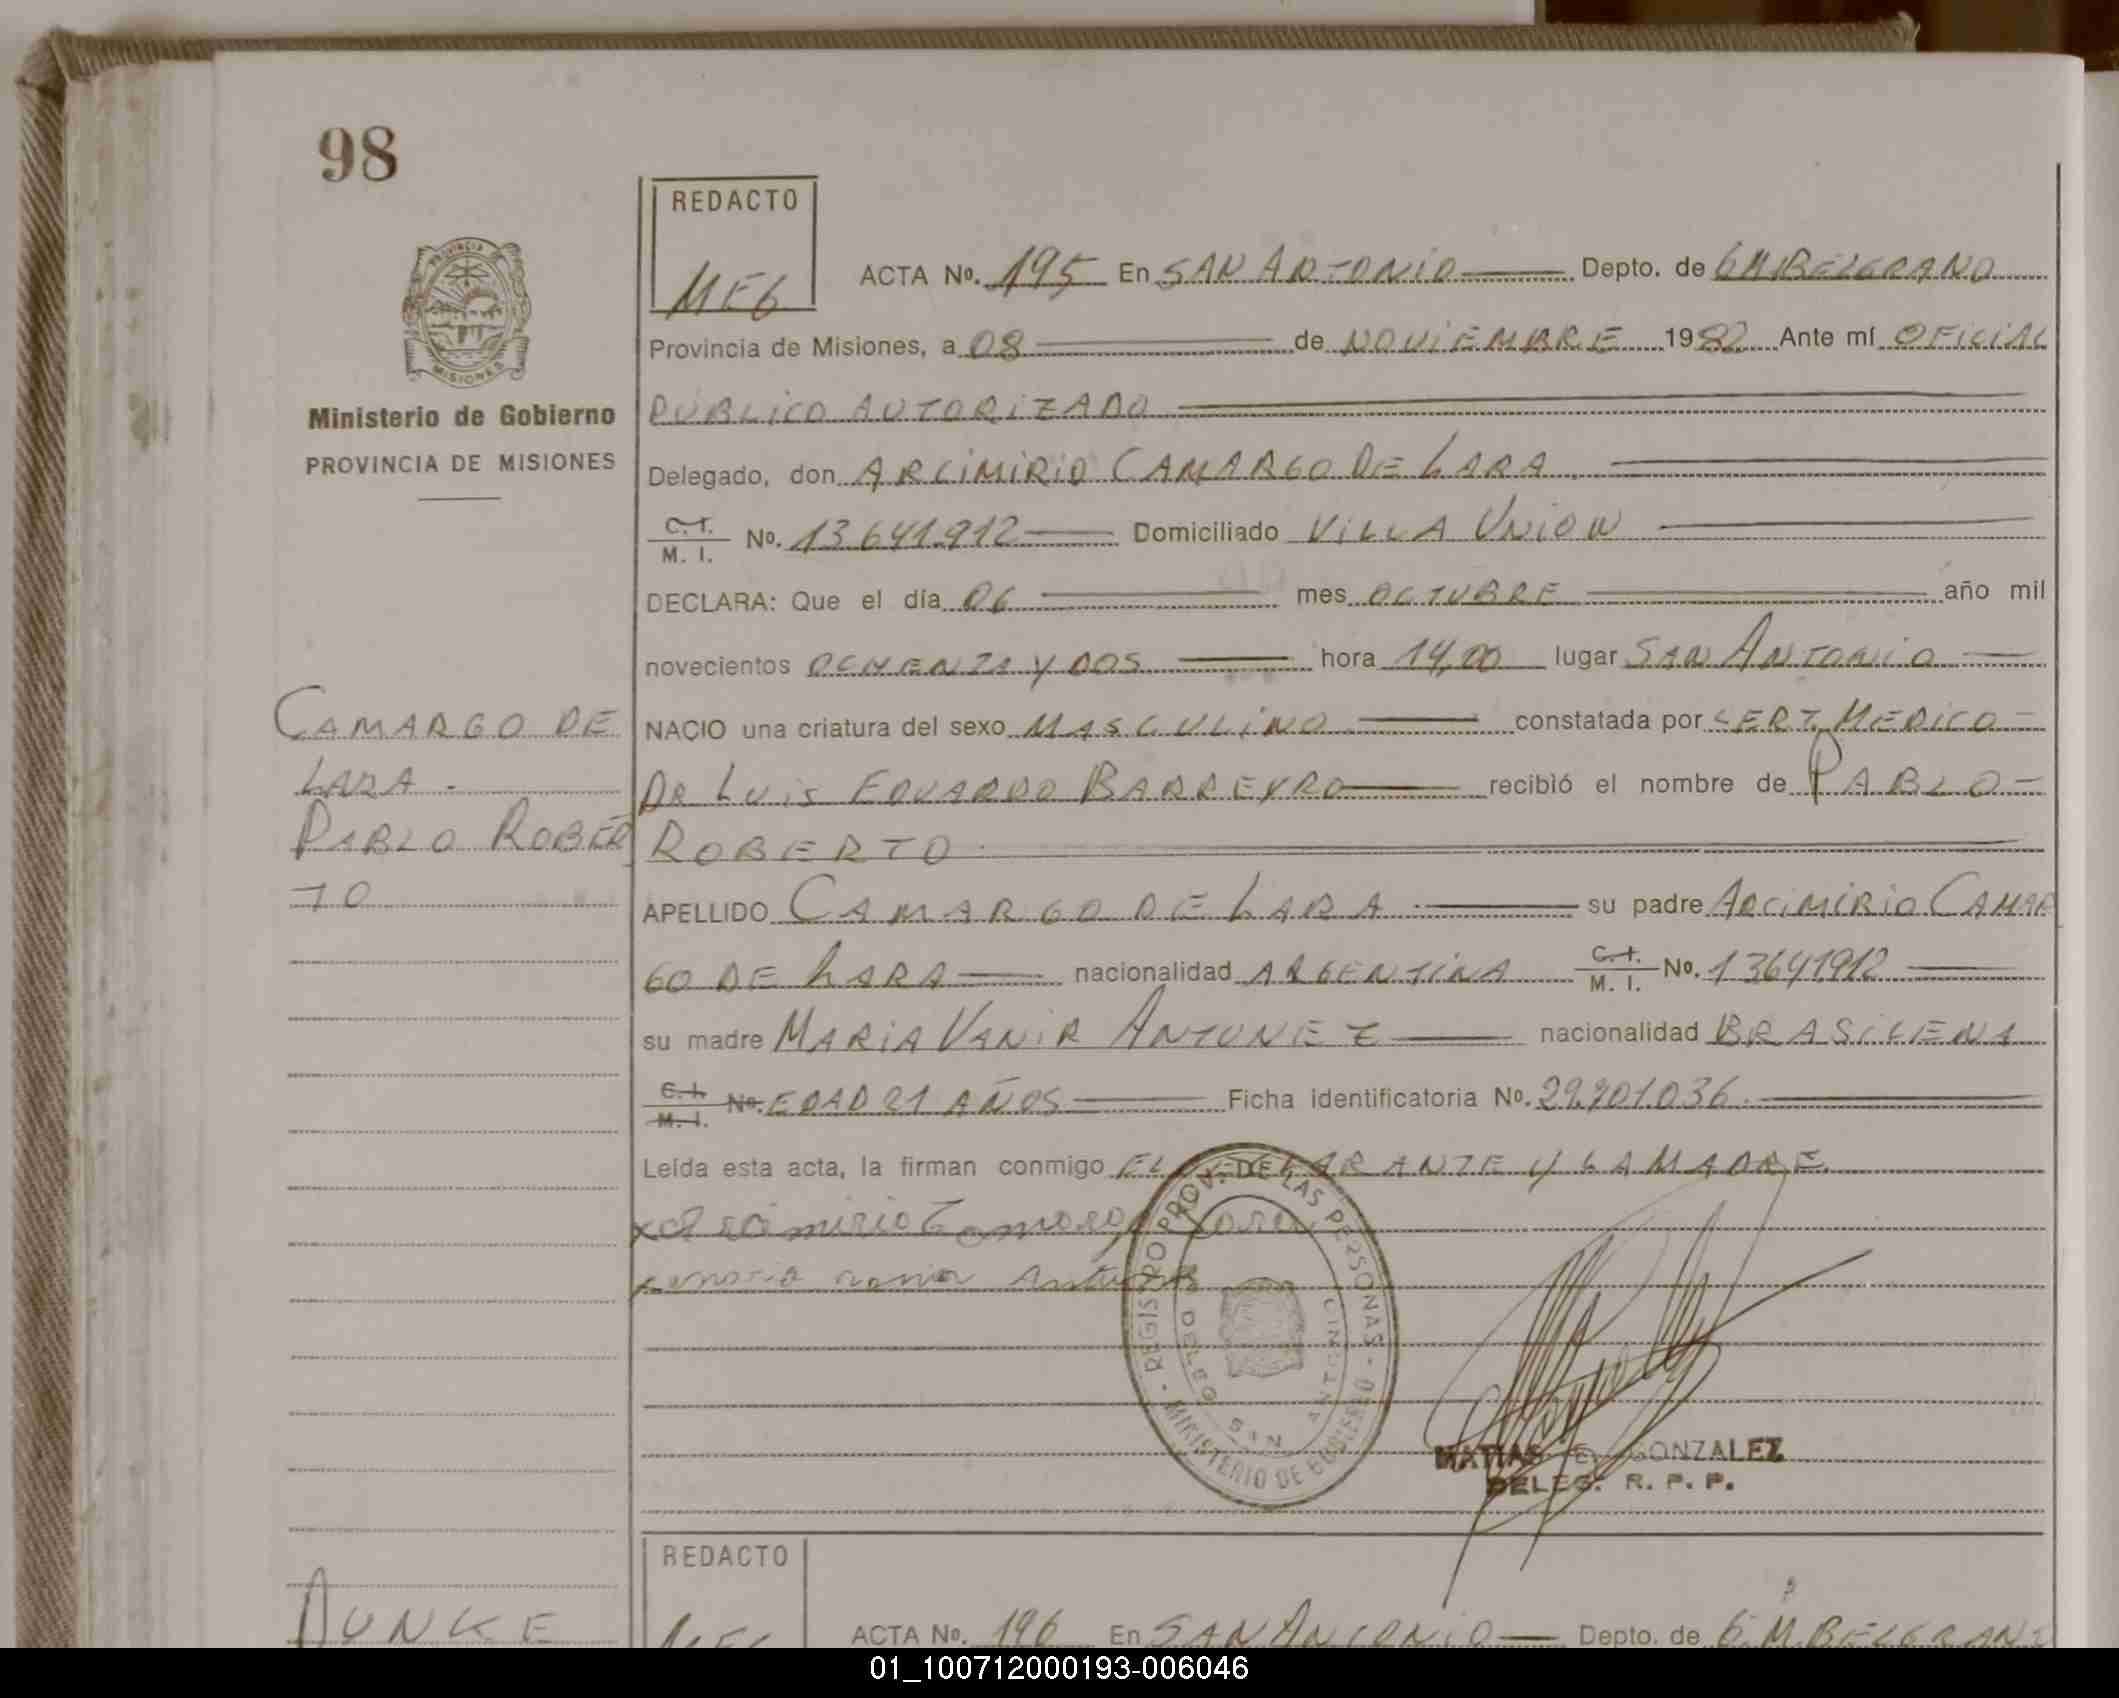 98
REDACTO
MEG
PROVINCIA DE
MISIONES
Ministerio de Gobierno
PROVINCIA DE MISIONES
ACTA No. 195 En SAN ANTONIO Depto. de GM BELGRANO
Provincia de Misiones, a 08 de NOVIEMBRE 1982 Ante mí OFICIAL
PUBLICO AUTORIZADO
Delegado, don ARCIMIRIO CAMARGO DE LARA
C. I. M. I. No. 13.641.912 Domiciliado VILLA UNION
DECLARA: Que el día 06 mes OCTUBRE año mil
novecientos OCHENTA Y DOS hora 14,00 lugar SAN ANTONIO
CAMARGO DE
LARA.
PABLO ROBER
TO
NACIO una criatura del sexo MASCULINO constatada por CERT. MEDICO
DR LUIS EDUARDO BARREYRO recibió el nombre de PABLO
ROBERTO
APELLIDO CAMARGO DE LARA su padre ARCIMIRIO CAMAR
GO DE LARA nacionalidad ARGENTINA C. I. M. I. No. 13641912
su madre MARIA VANIR ANTUNEZ nacionalidad BRASILENA
C. I. M. I. No. EDAD 21 AÑOS Ficha identificatoria No. 29.701.036
Leída esta acta, la firman conmigo EL DECLARANTE Y LA MADRE.
x Arcimirio Camargo Lara
REGISTRO PROV. DE LAS PERSONAS
MINISTERIO DE GOBIERNO
SAN ANTONIO
MATIAS E. GONZALEZ
DELEG. R. P. P.
REDACTO
MEG
DUNKE
ACTA No. 196 En SAN ANTONIO Depto. de G. M. BELGRANO
01_100712000193-006046